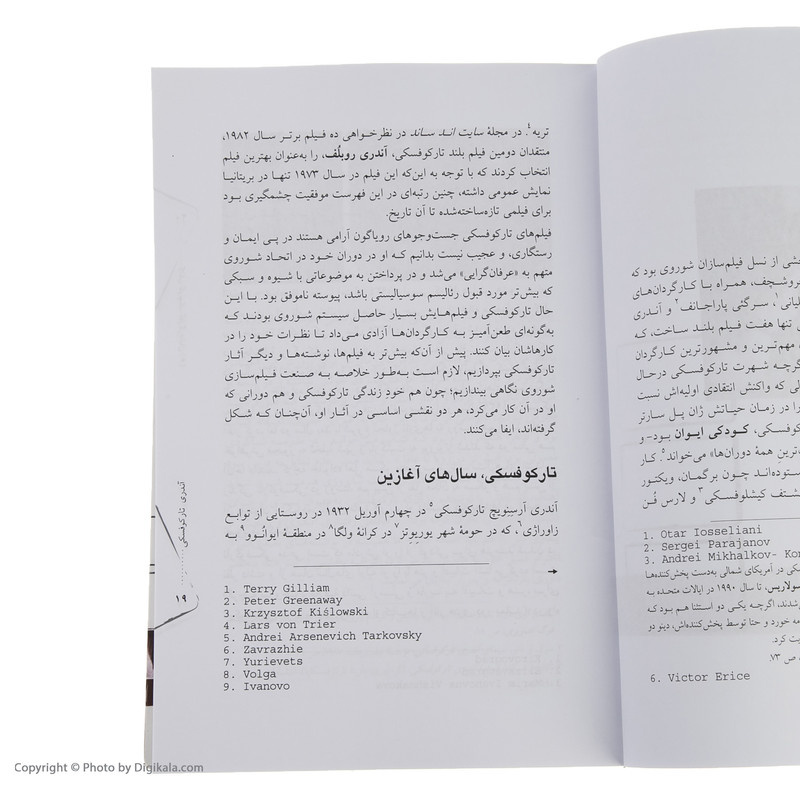 خشی از نسل فیلم‌سازان شوروی بود که
روشچف، همراه بـا کـارگردان‌های
لیانی۱، سرگئی پاراجانف۲ و آندری
تنها هفت فیلم بلند ساخت، که
مهم‌ترین و مشهورترین کارگردان
گرچه شهرت تارکوفسکی درحال
لی که واکنش انتقادی اولیه‌اش نسبت
را در زمان حیاتش ژان پل سارتر
کوفسکی، کودکی ایوان بود- و
ت‌ترین همهٔ دوران‌ها» می‌خواند۵. کار
ستوده‌اند چون برگمان، ویکتور
شتف کیشلوفسکی۳ و لارس فُن
1. Otar Iosseliani
2. Sergei Parajanov
3. Andrei Mikhalkov- Kon
کی در آمریکای شمالی به‌دست پخش‌کننده‌ها
سولاریس، تا سال ۱۹۹۰ در ایالات متحده به
شدند. اگرچه یکی دو استثنا هم بود که
مه خورد و حتا توسط پخش‌کننده‌اش، دینو دو
یت کرد.
، ص ۷۳.
6. Victor Erice
تریه۴. در مجلهٔ سایت انـد سـاند در نظرخـواهی ده فـیلم برتـر سال ۱۹۸۲،
منتقدان دومین فیلم بلند تارکوفسکی، آندری روبلُف، را به‌عنوان بهترین فیلم
انتخاب کردند که با توجه به این‌که این فیلم در سال ۱۹۷۳ تنها در بریتانیا
نمایش عمومی داشته، چنین رتبه‌ای در این فهرست موفقیت چشمگیری بـود
برای فیلمی تازه‌ساخته‌شده تا آن تاریخ.
فیلم‌های تارکوفسکی جست‌وجوهای رویاگون آرامی هستند در پـی ایمـان و
رستگاری، و عجیب نیست بدانیم که او در دوران خـود در اتحـاد شـوروی
متهم به «عرفان‌گرایی» می‌شد و در پرداختن به موضوعاتی با شیوه و سـبکی
که بیش‌تر مورد قبول رئالیسم سوسیالیستی باشد، پیوسته ناموفق بود. بـا ایـن
حال تارکوفسکی و فیلم‌هایش بسیار حاصل سیستم شـوروی بودنـد کـه
به‌گونه‌ای طعن‌آمیـز بـه کـارگردان‌ها آزادی می‌داد تـا نظرات خـود را در
کارهاشان بیان کنند. پیش از آن‌که بیش‌تر به فیلم‌ها، نوشته‌ها و دیگر آثـار
تارکوفسکی بپردازیم، لازم است به‌طور خلاصـه بـه صـنعت فیلم‌سـازی
شوروی نگاهی بیندازیم؛ چون هم خودِ زندگی تارکوفسکی و هم دورانی که
او در آن کار می‌کرد، هر دو نقشی اساسی در آثـار او، آن‌چنان کـه شـکل
گرفته‌اند، ایفا می‌کنند.
تارکوفسکی، سال‌های آغازین
آندری آرسِنویچ تارکوفسکی۵ در چهارم آوریل ۱۹۳۲ در روستایی از توابـع
زاوراژی۶، که در حومهٔ شهر یوریوِتز۷ در کرانهٔ ولگا۸ در منطقـهٔ ایوانُـوو۹ بـه
1. Terry Gilliam
2. Peter Greenaway
3. Krzysztof Kiślowski
4. Lars von Trier
5. Andrei Arsenevich Tarkovsky
6. Zavrazhie
7. Yurievets
8. Volga
9. Ivanovo
آندری تارکوفسکی
۱۹
Copyright © Photo by Digikala.com